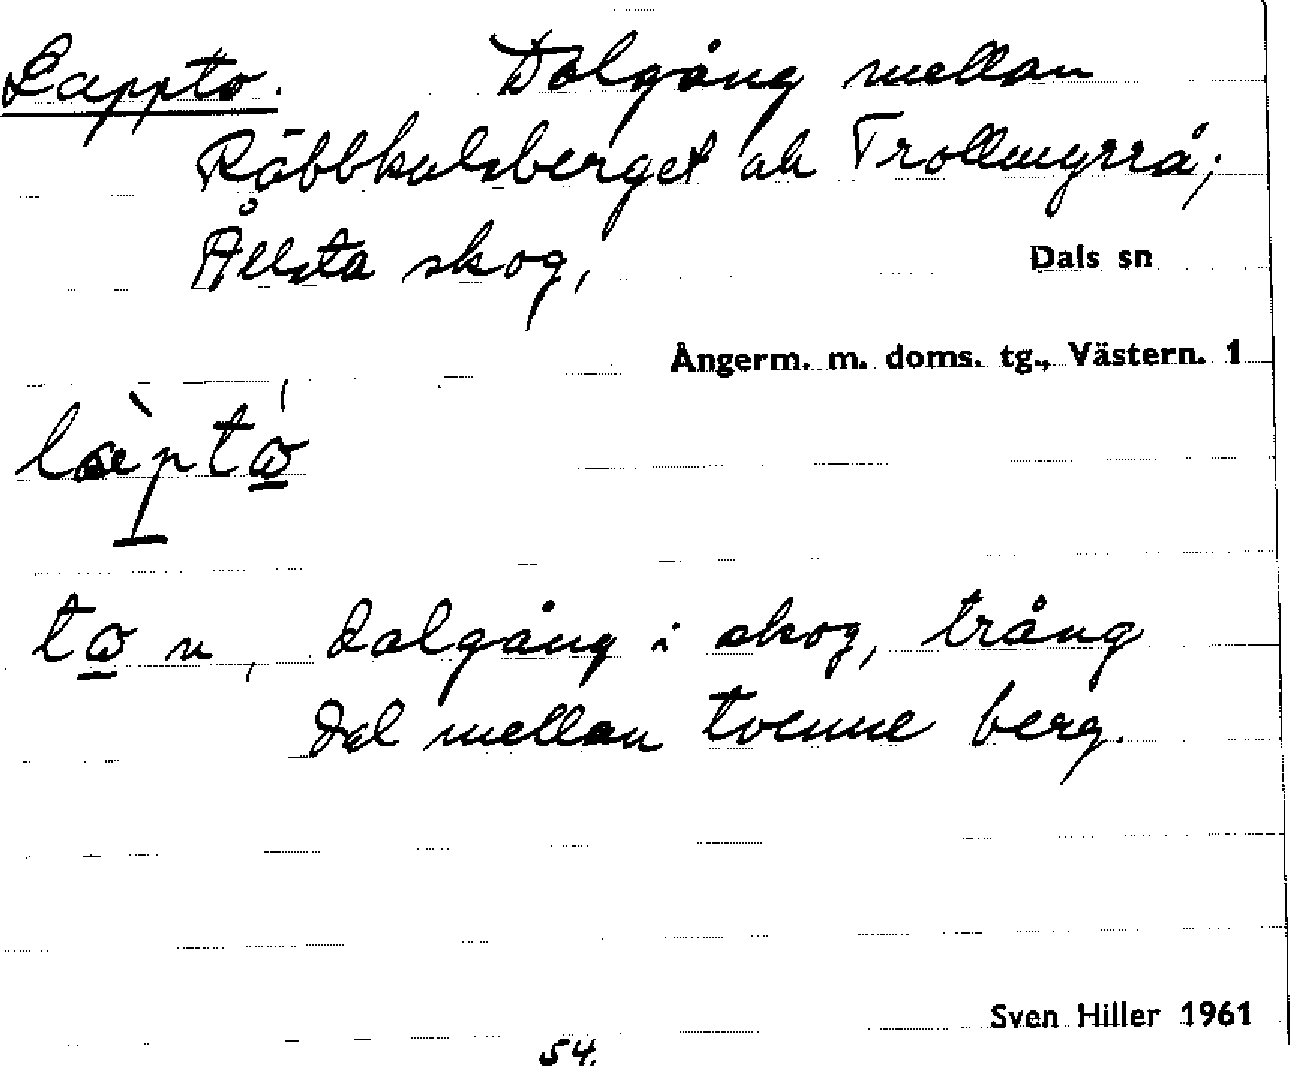 Lappto. Dalgång mellan
Räbbkulsberget och Trollmyrrå;
Ållsta skog, Dals sn
Ångerm. m. doms. tg., Västern. 1
to n, dalgång i skog, trång
dal mellan tvenne berg.
Sven Hiller 1961
54.